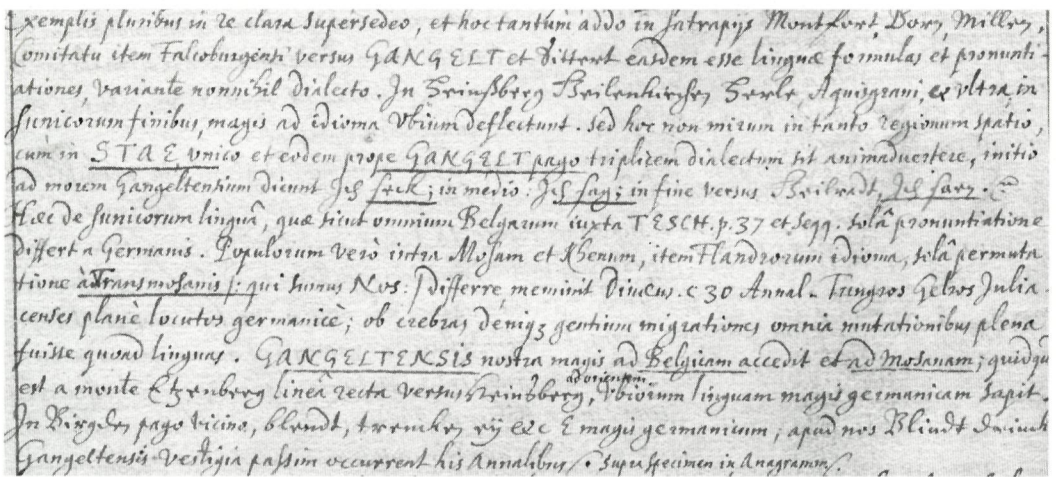 exemplis pluribus in re clara supersedeo, et hoc tantum addo in satrapijs Montfort, Born, Millen,
Comitatu item Falcoburgensi versus GANGELT et Sittert easdem esse linguæ formulas et pronunti-
ationes, variante nonnihil dialecto. In Heinßberg Geilenkirchen Herle, Aquisgrani, et vltra, in
Sunicorum finibus, magis ad idioma Vbium deflectunt. Sed hoc non mirum in tanto regionum spatio,
cum in STAE vnico et eodem prope GANGELT pago triplicem dialectum sit animaduertere, initio
ad morem Gangeltensium dicunt Ich seck; in medio: Ich sag; in fine versus Heilradt, Ich saen.
Hæc de Sunicorum linguâ, quæ sicut omnium Belgarum iuxta TESCH. p. 37 et seqq. solâ pronuntiatione
differt a Germanis. Populorum verò intra Mosam et Rhenum, item Flandrorum idioma, solâ permuta
tione à Transmosanis /: qui sumus Nos: / differre, meminit Diuæus. c 30 Annal. Tungros Gelros Julia-
censes planè locutos germanicè; ob crebras deniqz gentium migrationes omnia mutationibus plena
fuisse quoad linguas. GANGELTENSIS nostra magis ad Belgicam accedit et ad Mosanam; quidqu
est a monte Etzenberg lineâ recta versus Heinsberg, ad orientem Vbiorum linguam magis germanicam sapit.
In Birgden pago vicino, blendt, trencken eÿ &c E magis germanicum; apud nos Blindt drinck
Gangeltensis vestigia passim occurrent his Annalibus /. supra specimen in Anagramm/.